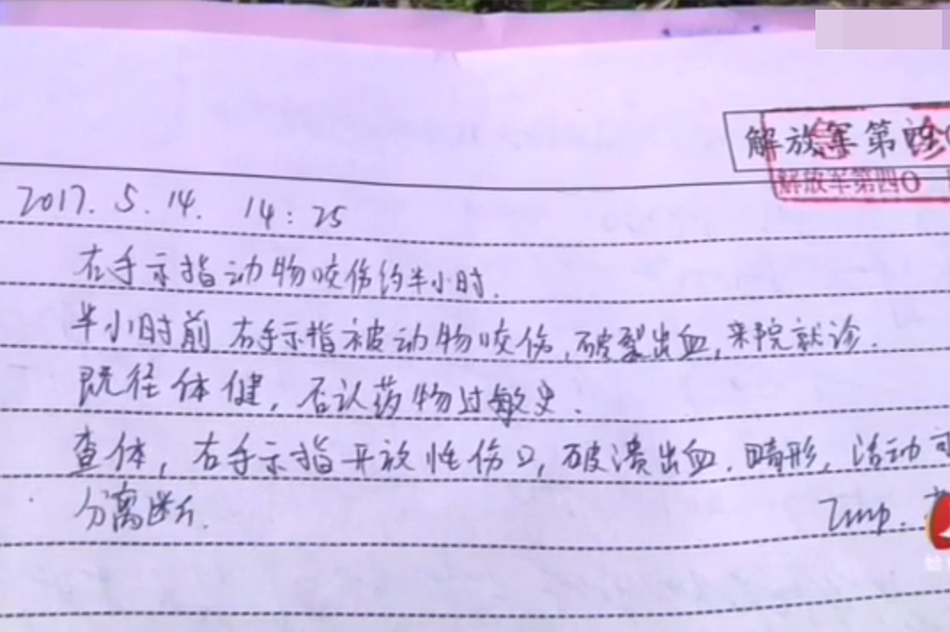 解放军第四
解放军第四0
2017. 5. 14. 14:25
右手示指动物咬伤约半小时.
半小时前右手示指被动物咬伤,破裂出血,来院就诊.
既往体健,否认药物过敏史.
查体,右手示指开放性伤口,破溃出血.畸形,活动
分离断片.
Imp.